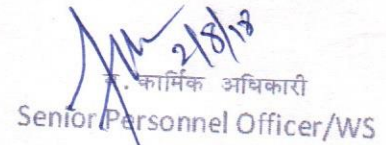 2/8/18
व. कार्मिक अधिकारी
Senior Personnel Officer/WS